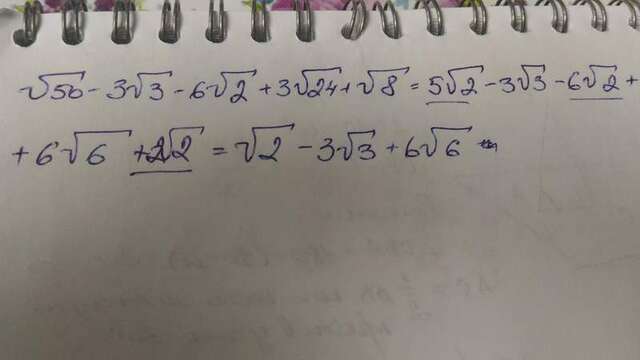 √50 - 3√3 - 6√2 + 3√24 + √8 = 5√2 - 3√3 - 6√2 +
+ 6√6 + 2√2 = √2 - 3√3 + 6√6